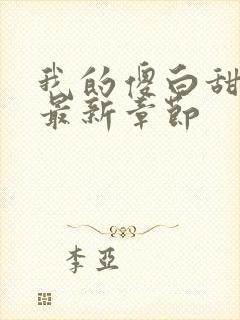 我的傻白甜
最新章节
李亚